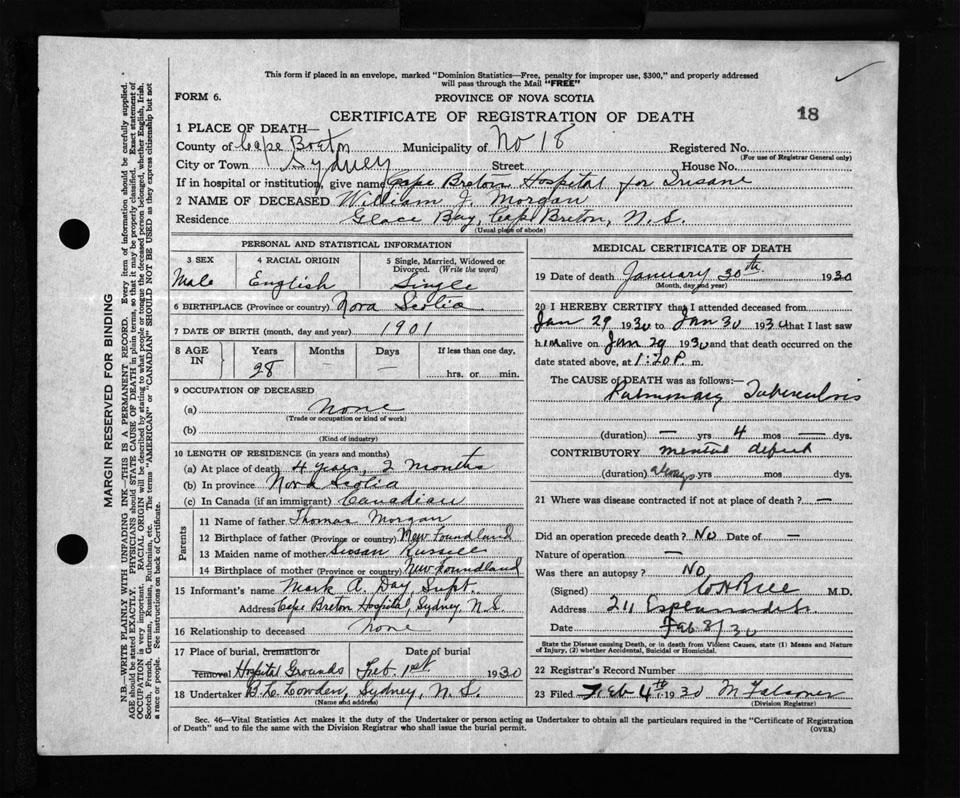 This form if placed in an envelope, marked "Dominion Statistics—Free, penalty for improper use, $300," and properly addressed
will pass through the Mail "FREE"
FORM 6.
PROVINCE OF NOVA SCOTIA
CERTIFICATE OF REGISTRATION OF DEATH
18
1 PLACE OF DEATH—
County of Cape Breton Municipality of No 18 Registered No.
(For use of Registrar General only)
City or Town Sydney Street House No.
If in hospital or institution, give name Cape Breton Hospital for Insane
2 NAME OF DECEASED William J. Morgan
Residence Glace Bay, Cape Breton, N.S.
(Usual place of abode)
PERSONAL AND STATISTICAL INFORMATION
3 SEX 4 RACIAL ORIGIN 5 Single, Married, Widowed or Divorced. (Write the word)
Male English Single
6 BIRTHPLACE (Province or country) Nova Scotia
7 DATE OF BIRTH (month, day and year) 1901
8 AGE IN Years Months Days If less than one day,
28 — — hrs. or min.
9 OCCUPATION OF DECEASED
(a) None
(Trade or occupation or kind of work)
(b)
(Kind of industry)
10 LENGTH OF RESIDENCE (in years and months)
(a) At place of death 4 years, 2 months
(b) In province Nova Scotia
(c) In Canada (if an immigrant) Canadian
Parents
11 Name of father Thomas Morgan
12 Birthplace of father (Province or country) New Foundland
13 Maiden name of mother Susan Russell
14 Birthplace of mother (Province or country) New Foundland
15 Informant's name Mark A. Day, Supt.
Address Cape Breton Hospital, Sydney, N.S.
16 Relationship to deceased None
17 Place of burial, cremation or Date of burial
removal Hospital Grounds Feb. 1st 1930
18 Undertaker B.L. Lowden, Sydney, N.S.
(Name and address)
MEDICAL CERTIFICATE OF DEATH
19 Date of death January 30th 1930
(Month, day and year)
20 I HEREBY CERTIFY that I attended deceased from
Jan 29 1930 to Jan 30 1930 that I last saw
him alive on Jan 29 1930 and that death occurred on the
date stated above, at 1:20 P. m.
The CAUSE of DEATH was as follows:
Pulmonary Tuberculosis
(duration) — yrs 4 mos — dys.
CONTRIBUTORY mental defect
(duration) always yrs mos dys.
21 Where was disease contracted if not at place of death? —
Did an operation precede death? No Date of —
Nature of operation —
Was there an autopsy? No
(Signed) Rice M.D.
Address 211 Esplanade St.
Date Feb 8/30
State the Disease causing Death, or in death from Violent Causes, state (1) Means and Nature of Injury, (2) whether Accidental, Suicidal or Homicidal.
22 Registrar's Record Number
23 Filed Feb 4th 1930 M Falconer
(Division Registrar)
Sec. 46—Vital Statistics Act makes it the duty of the Undertaker or person acting as Undertaker to obtain all the particulars required in the "Certificate of Registration
of Death" and to file the same with the Division Registrar who shall issue the burial permit.
(OVER)
MARGIN RESERVED FOR BINDING
N.B.—WRITE PLAINLY WITH UNFADING INK—THIS IS A PERMANENT RECORD. Every item of information should be carefully supplied.
AGE should be stated EXACTLY. PHYSICIANS should STATE CAUSE OF DEATH in plain terms, so that it may be properly classified. Exact statement of
OCCUPATION is very important. RACIAL ORIGIN will be described by stating to what people or tongue the deceased person belonged, whether English, Irish,
Scotch, French, German, Russian, Ruthenian, etc. The terms "AMERICAN" or "CANADIAN" SHOULD NOT BE USED as they express citizenship but not
a race or people. See instructions on back of Certificate.